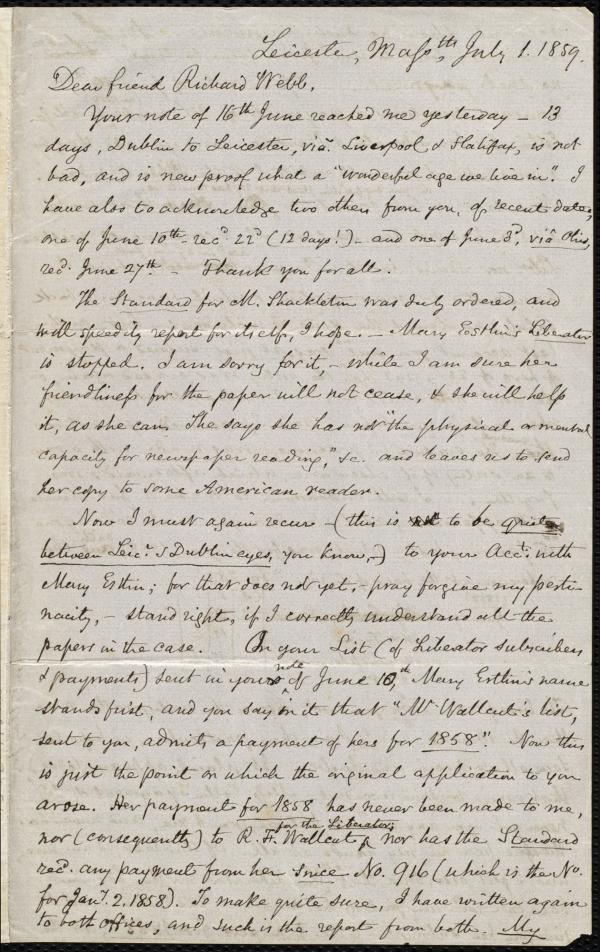 Leicester, Mass.th July 1. 1859.
Dear friend Richard Webb,
Your note of 16th June reached me yesterday – 13
days, Dublin to Leicester, viâ. Liverpool & Halifax, is not
bad, and is new proof what a "wonderful age we live in". I
have also to acknowledge two others from you, of recent date,
one of June 10th – recd. 22d (12 days!) – and one of June 3d, viâ
recd. June 27th. – Thank you for all.
The Standard for M. Shackleton was duly ordered, and
will speedily report for itself, I hope. – Mary Estlin's Liberator
is stopped. I am sorry for it, – while I am sure her
friendliness for the paper will not cease, & she will help
it, as she can. She says she has not "the physical or mental
capacity for newspaper reading," &c. and leaves us to send
her copy to some American reader.
Now I must again recur – (this is to be
between Leicr. & Dublin eyes, you know, –) to your Acct. with
Mary Estlin; for that does not yet, – pray forgive my perti-
nacity, – stand right, if I correctly understand all the
papers in the case. On your List (of Liberator subscribers
& payments) sent in your note of June 10th, Mary Estlin's name
stands first, and you say in it that "Mr Wallcut's list,
sent to you, admits a payment of hers for 1858". Now this
is just the point on which the original application to you
arose. Her payment for 1858 has never been made to me,
nor (consequently) to R. F. Wallcut for the Liberator, nor has the Standard
recd. any payment from her since No. 916 (which is the No.
for Jany. 2, 1858). To make quite sure, I have written again
to both offices, and such is the report from both. My